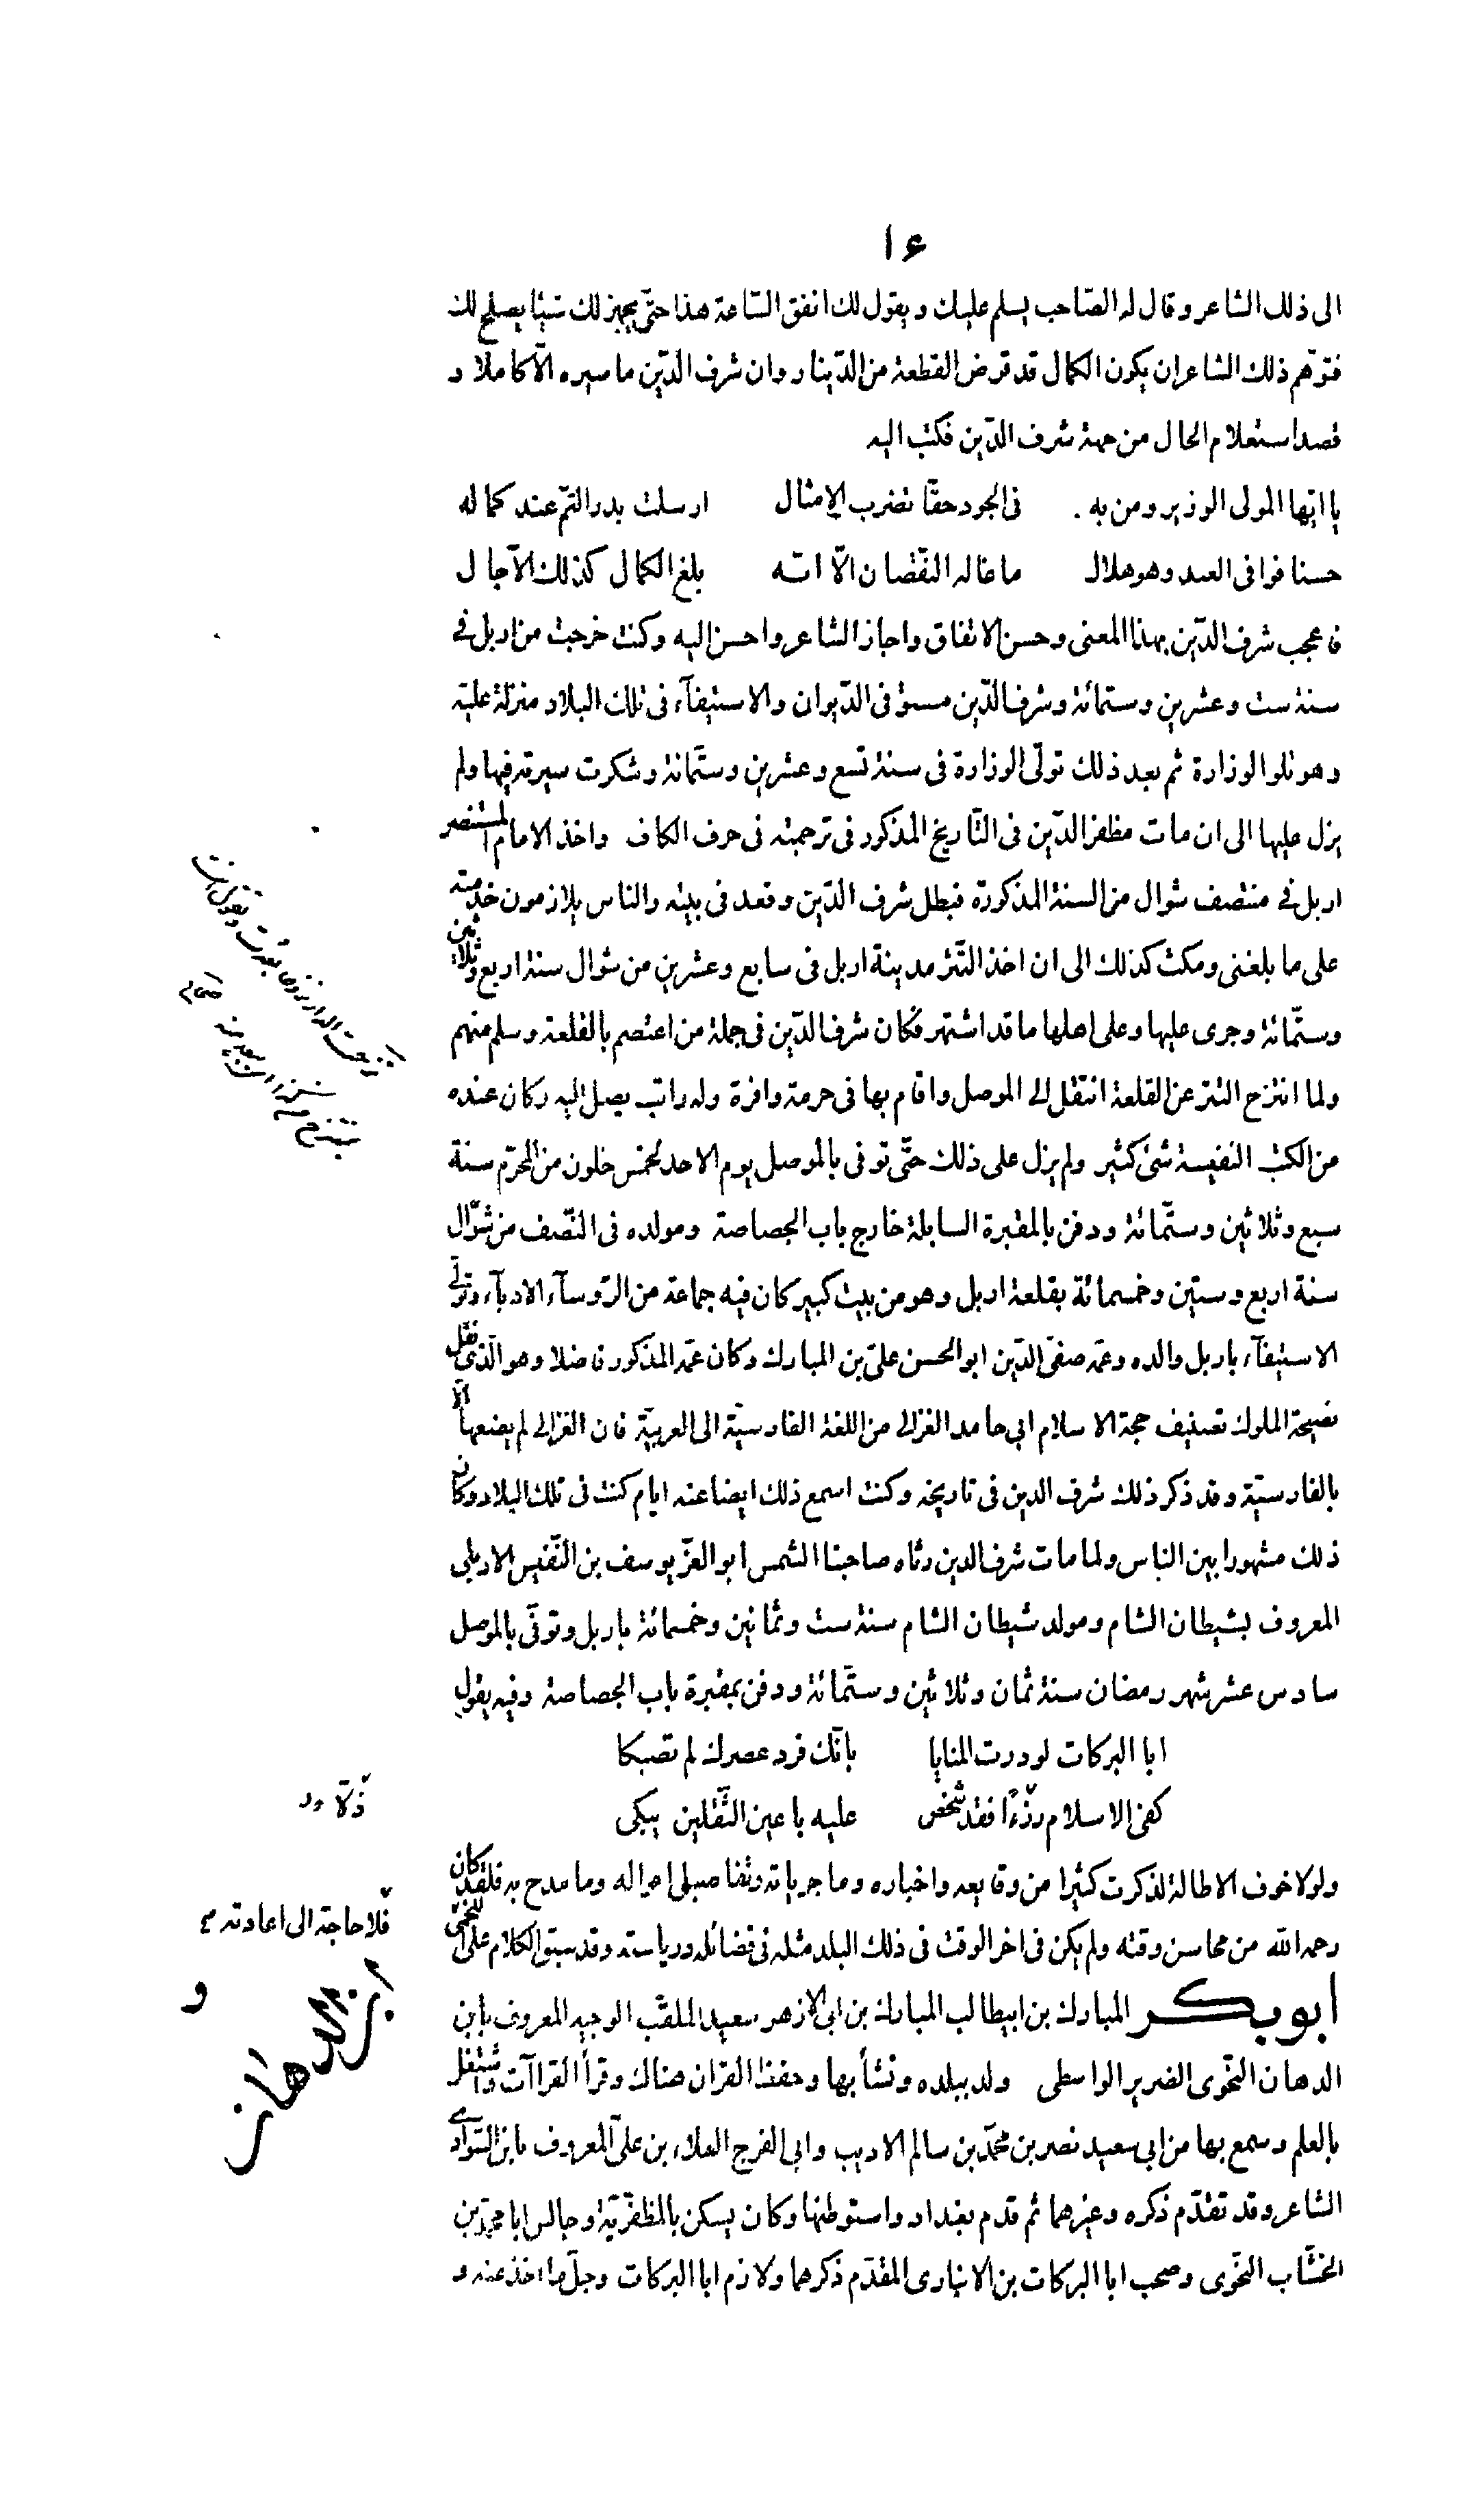 ١۶
الى ذلك الشاعر وقال له الصّاحب يسلم عليك ويقول لك انفق السّاعة هذا حتّى يجهز لك شيئا يصلح لك
فتوّهم ذلك الشاعر ان يكون الكمال قد قرض القطعة من الدّينار وان شرف الدّين ما سيره الّا كاملا و
قصد استعلام الحال من جهة شرف الدّين فكتب اليه
يا ايّها المولى الوزير ومن به فى الجود حقّا تضرب الامثال ارسلت بدر التّم عند كماله
حسنا فوافى العبد وهو هلال ما غاله النقصان الّا انّه بلغ الكمال كذلك الآجال
فاعجب شرف الدّين بهذا المعنى وحسن الاتفاق واجاز الشاعر واحسن اليه وكنت خرجت من اربل فى
سنة ست وعشرين وستمائة وشرف الدّين مستوفى الدّيوان والاستيفآء فى تلك البلاد منزلة عليّه
وهو تلو الوزارة ثم بعد ذلك تولّى الوزارة فى سنة تسع وعشرين وستّمائة وشكرت سيرته فيها ولم
يزل عليها الى ان مات مظفر الدّين فى التّاريخ المذكور فى ترجمته فى حرف الكاف واخذ الامام المستنصر
اربل فى منتصف شوال من السنة المذكورة فبطل شرف الدّين وقعد فى بيته والناس يلازمون خدمته
على ما بلغنى ومكث كذلك الى ان اخذ التّتر مدينة اربل فى سابع وعشرين من شوال سنة اربع وثلاثين
وستّمائة وجرى عليها وعلى اهلها ما قد اشتهر فكان شرف الدّين فى جملة من اعتصم بالقلعة وسلم منهم
ولما انتزح التتر عن القلعة انتقل الى الموصل واقام بها فى حرمة وافرة وله راتب يصل اليه وكان عنده
من الكتب النفيسة شئ كثير ولم يزل على ذلك حتّى توفى بالموصل يوم الاحد لخمس خلون من المحرّم سنة
سبع وثلاثين وستّمائة ودفن بالمقبرة السابلة خارج باب الجصاصة ومولده فى النّصف من شوّال
سنة اربع وستين وخمسمائة بقلعة اربل وهو من بيت كبير كان فيه جماعة من الرّوسآء الادبآء وتولّى
الاستيفآء باربل والده وعمّه صفىّ الدّين ابو الحسن علىّ بن المبارك وكان عمّه المذكور فاضلا وهو الّذى نقل
نصيحة الملوك تصنيف حجة الاسلام ابى حامد الغزالى من اللغة الفارسيّة الى العربيّة فان الغزالى لم يضعها الّا
بالفارسيّة وقد ذكر ذلك شرف الدين فى تاريخه وكنت اسمع ذلك ايضا عنه ايام كنت فى تلك البلاد وكان
ذلك مشهورا بين الناس ولما مات شرف الدين رثاه صاحبنا الشمس ابو العزّ يوسف بن النّفيس الاربلى
المعروف بشيطان الشام ومولد شيطان الشام سنة ست وثمانين وخمسمائة باربل وتوفّى بالموصل
سادس عشر شهر رمضان سنة ثمان وثلاثين وستّمائة ودفن بمقبرة باب الجصاصة وفيه يقول
ابا البركات لو درت المنايا بانّك فرد عصرك لم تصبكا
كفى الاسلام رزءًا فقد شخص عليه باعين الثّقلين يبكى
ولولا خوف الاطالة لذكرت كثيرا من وقايعه واخباره وماجرياته وتفاصيل احواله وما مدح به فلقد كان
رحمه الله من محاسن وقته ولم يكن فى اخر الوقت فى ذلك البلد مثله فى فضائله ورياسته وقد سبق الكلام على اللخمى
فلا حاجة الى اعادته
ابن الدهان
ابو بكر المبارك بن ابيطالب المبارك بن ابى الازهر سعيد الملقّب الوجيه المعروف بابن
الدهان النحوى الضرير الواسطى ولد ببلده ونشأ بها وحفظ القران هناك وقرأ القراآت واشتغل
بالعلم وسمع بها من ابى سعيد نصر بن محمّد بن سالم الاديب وابى الفرج العلاء بن علىّ المعروف بابن السّوادى
الشاعر وقد تقدّم ذكره وغيرهما ثم قدم بغداد واستوطنها وكان يسكن بالمظفّريّة وجالس ابا محمّد بن
الخشّاب النحوى وصحب ابا البركات بن الانبارى المقدّم ذكرهما ولازم ابا البركات وجلّ ما اخذ عنه و